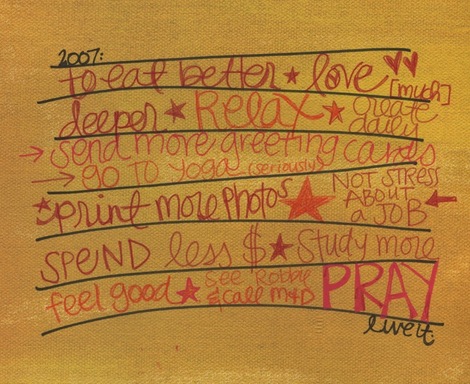 2007:
to eat better ★ love [much]
deeper ★ RELAX ★ create daily
→ send more greeting cards
→ go to yoga (seriously)
★ print more photos ★ NOT STRESS ABOUT a JOB ←
SPEND less $ ★ Study more
feel good ★ see Robbie & call M+D PRAY
live it.